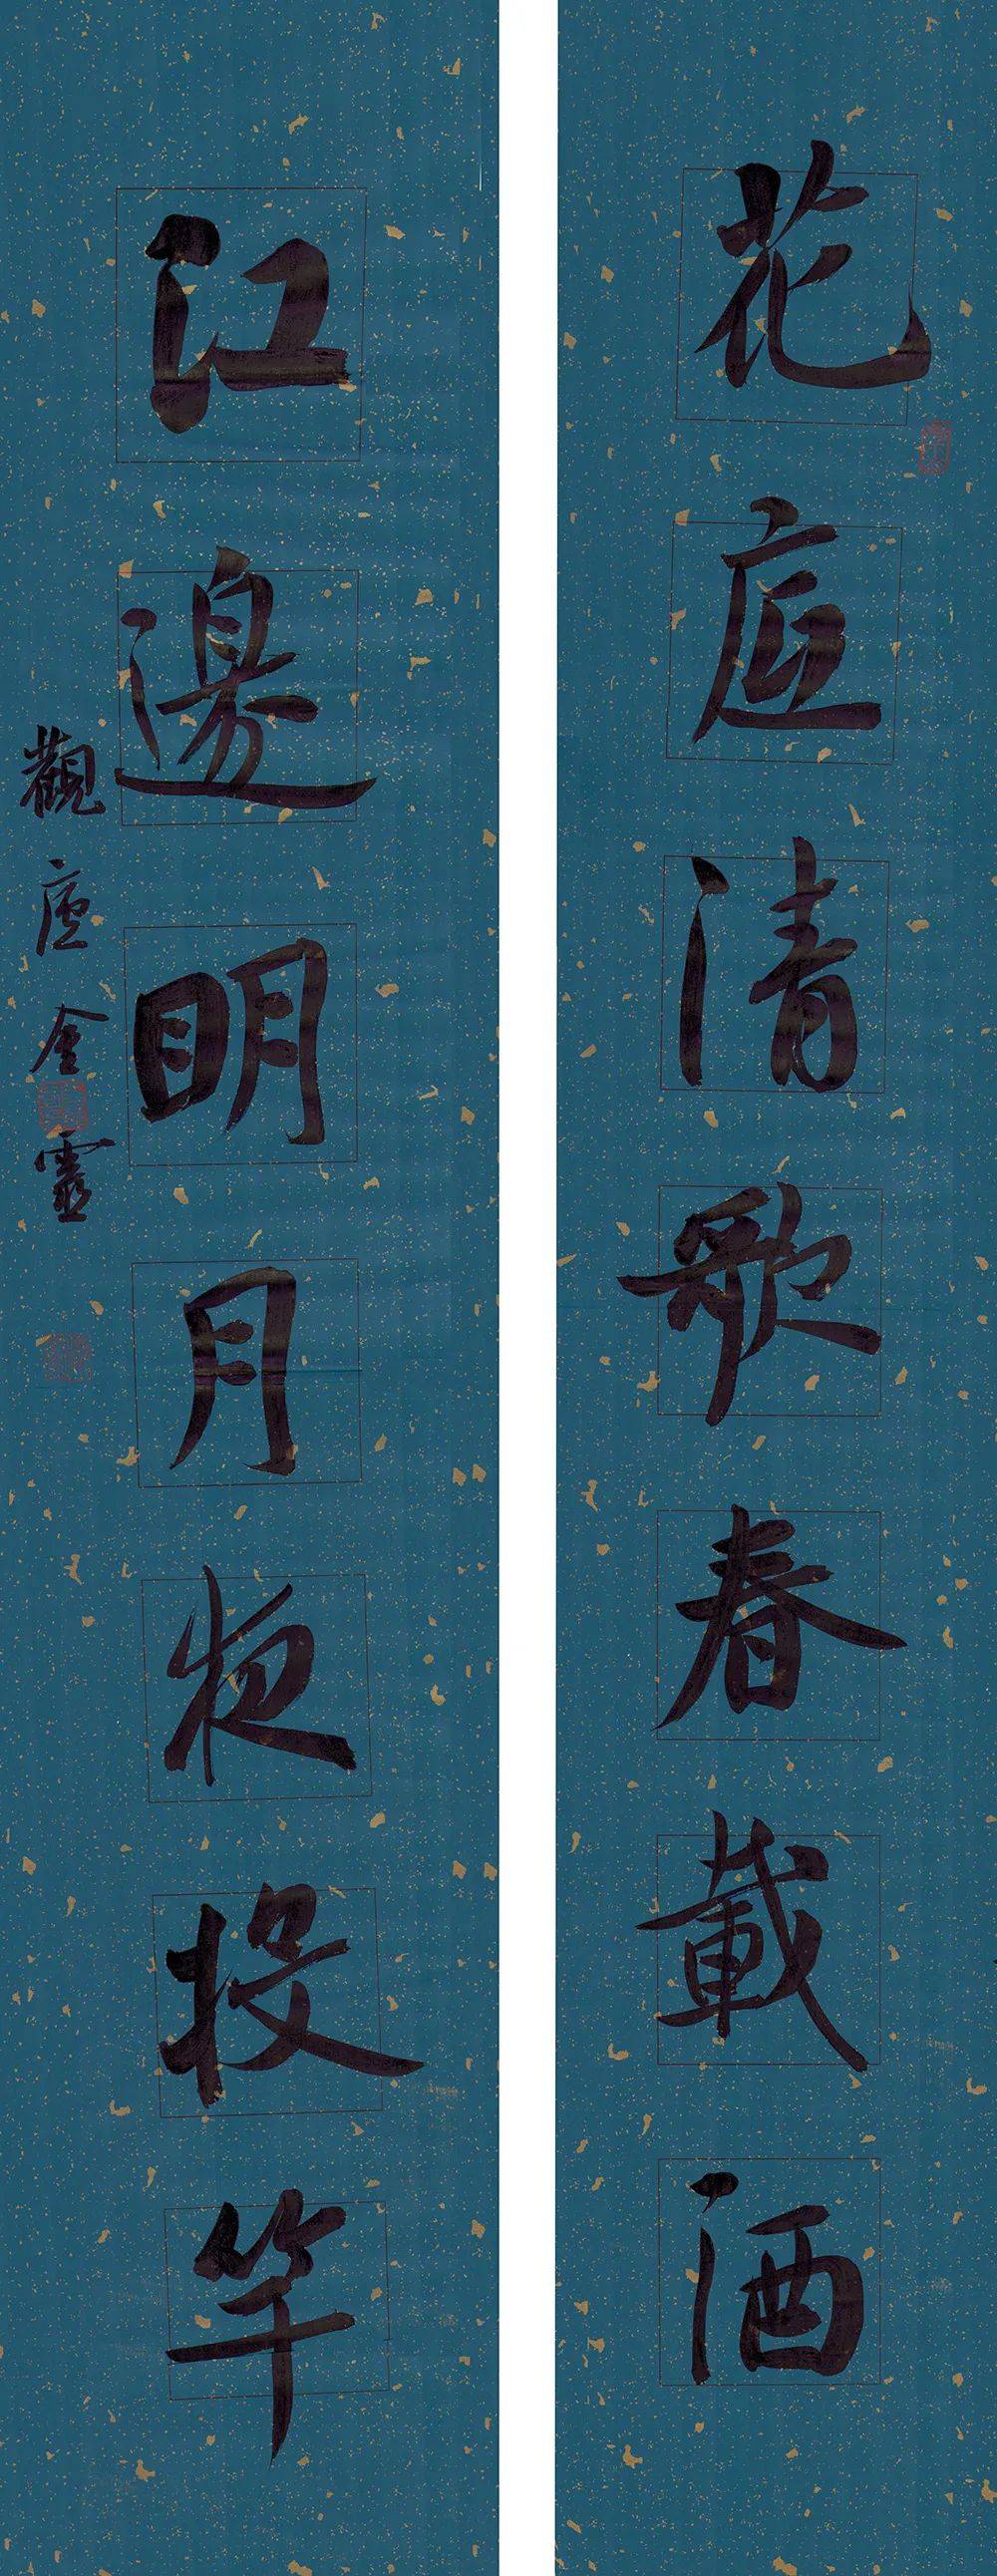 花庭清歌春載酒
江邊明月夜投竿
觀廬金靈